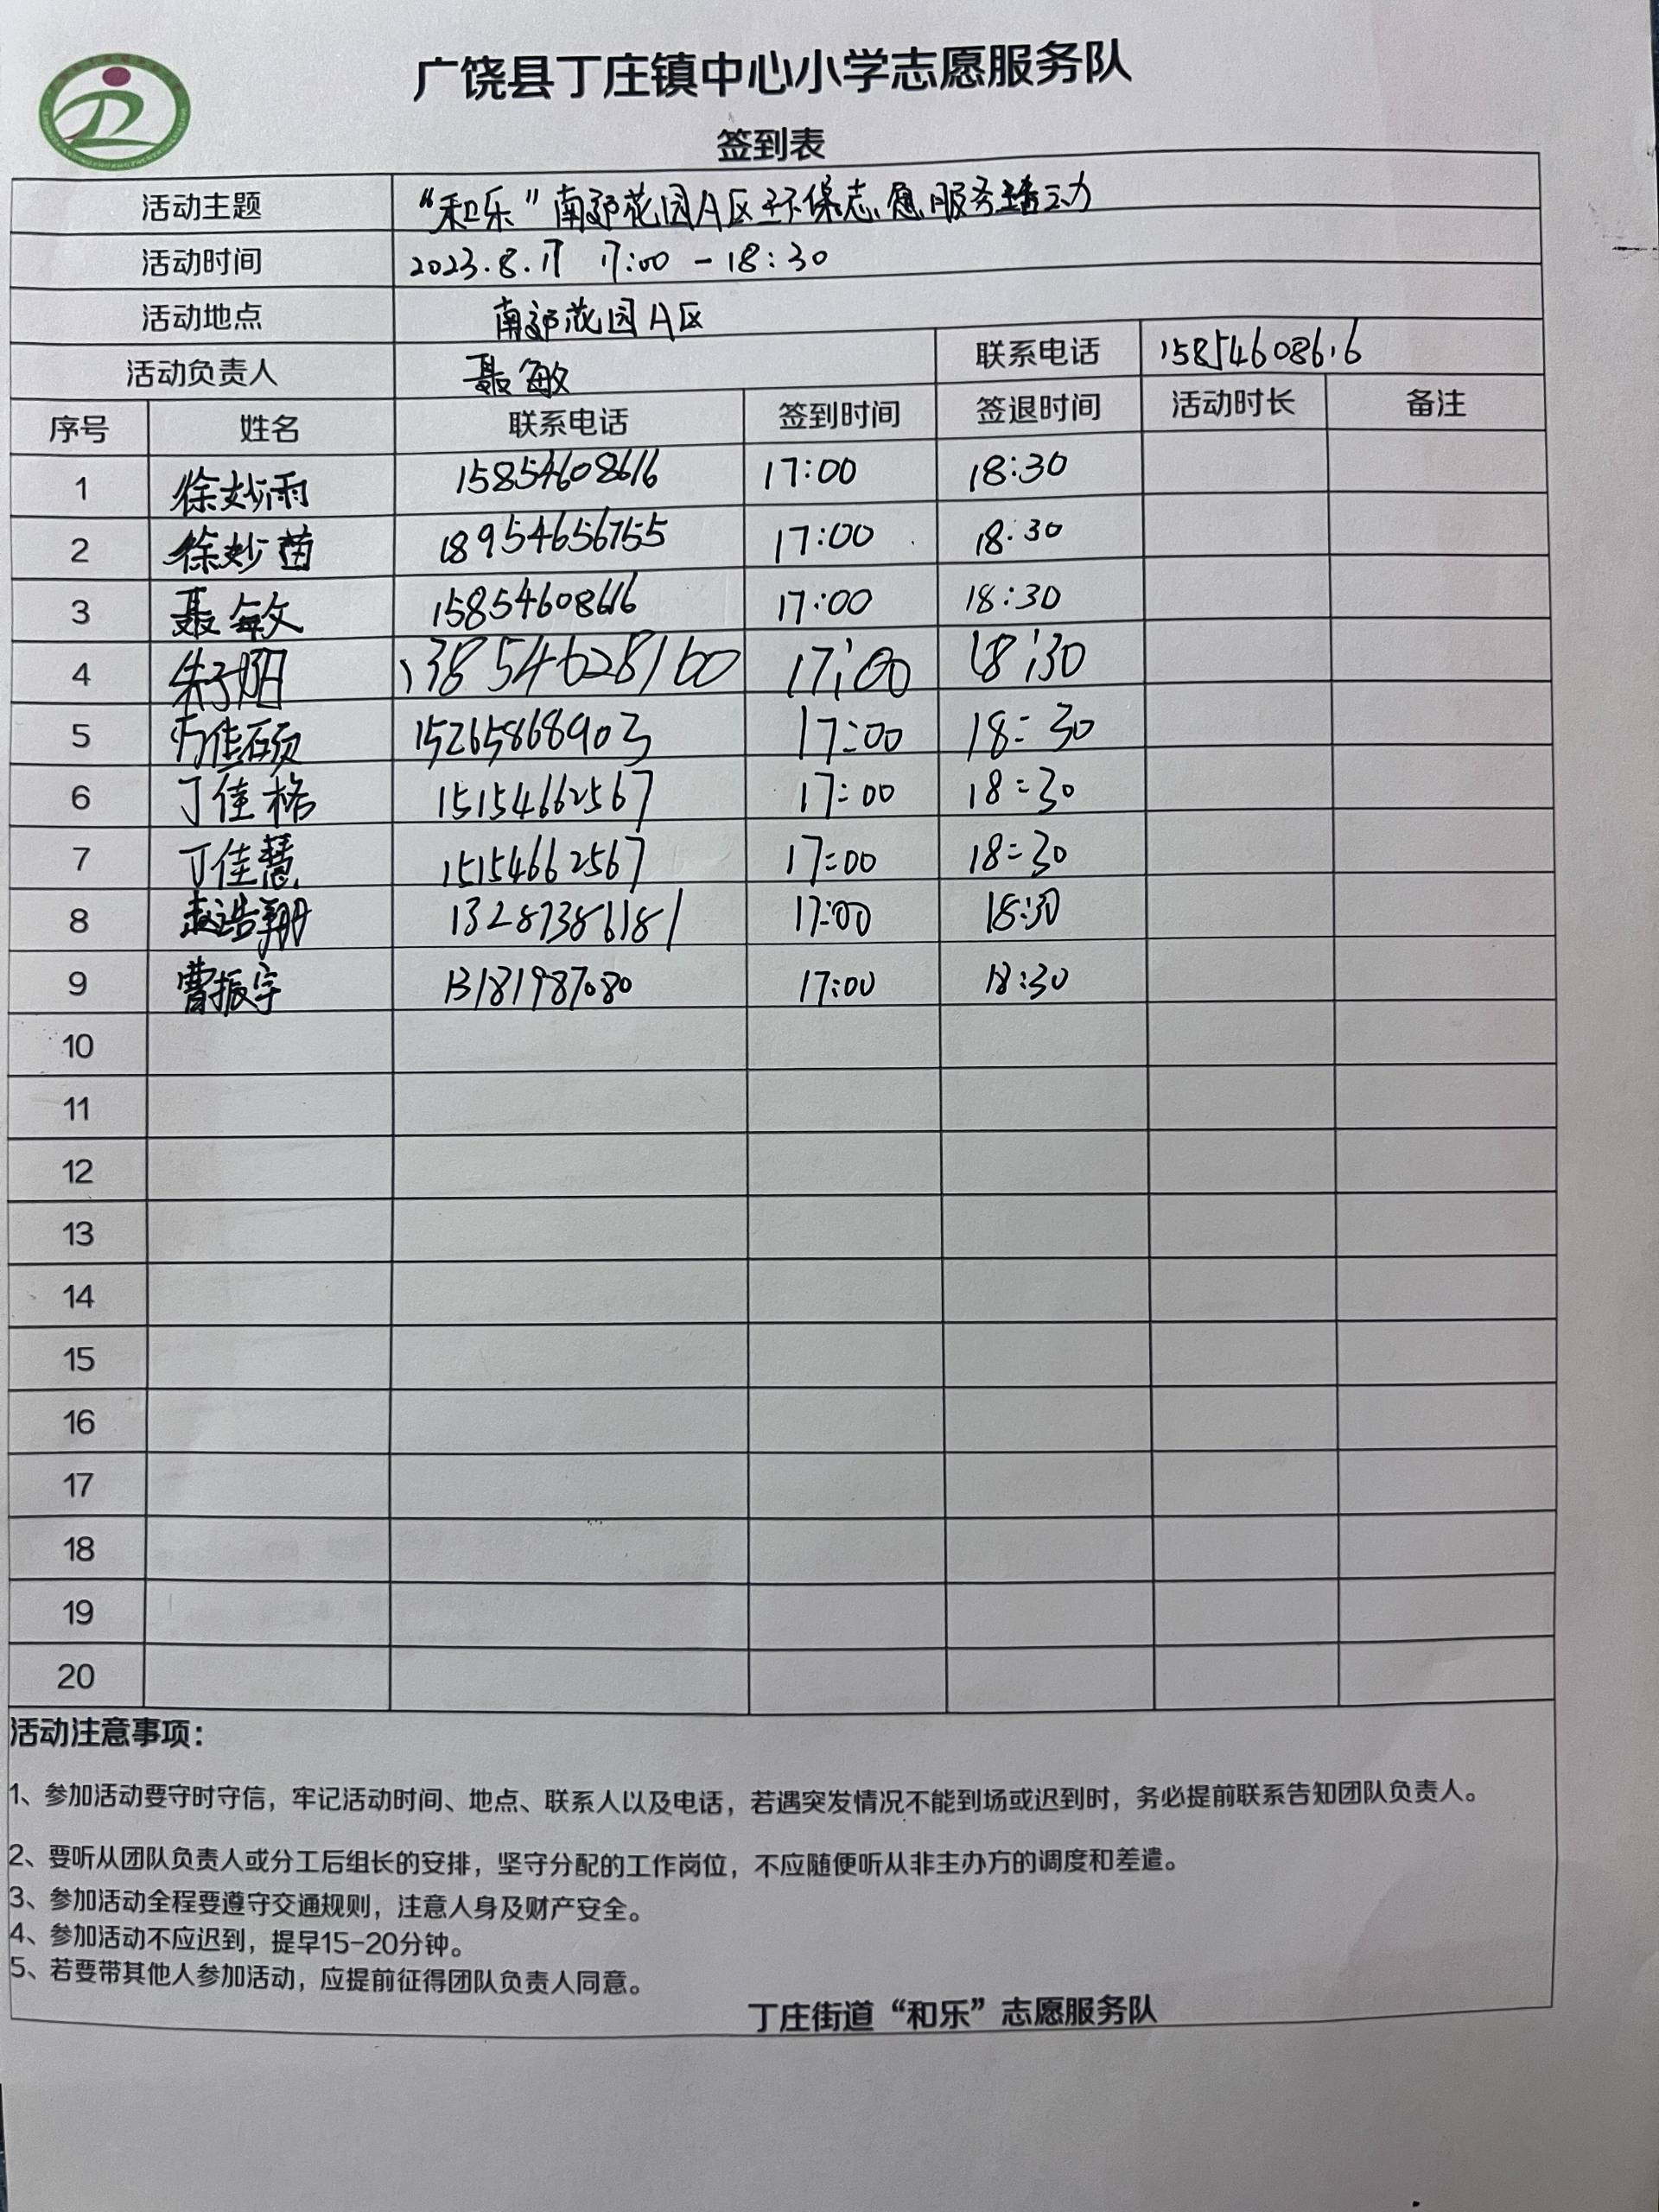 广饶县丁庄镇中心小学志愿服务队
签到表
活动主题 “和乐”南郊花园A区环保志愿服务活动
活动时间 2023.8.17 17:00-18:30
活动地点 南郊花园A区
活动负责人 聂敏 联系电话 15854608616
序号 姓名 联系电话 签到时间 签退时间 活动时长 备注
1 徐妙雨 15854608616 17:00 18:30
2 徐妙茵 18954656755 17:00 18:30
3 聂敏 15854608616 17:00 18:30
4 朱子阳 13854628160 17:00 18:30
5 佳硕 15265868903 17:00 18:30
6 丁佳格 15154662567 17:00 18:30
7 丁佳慧 15154662567 17:00 18:30
8 赵浩翔 13287386181 17:00 18:30
9 曹振宇 13181987080 17:00 18:30
10
11
12
13
14
15
16
17
18
19
20
活动注意事项：
1、参加活动要守时守信，牢记活动时间、地点、联系人以及电话，若遇突发情况不能到场或迟到时，务必提前联系告知团队负责人。
2、要听从团队负责人或分工后组长的安排，坚守分配的工作岗位，不应随便听从非主办方的调度和差遣。
3、参加活动全程要遵守交通规则，注意人身及财产安全。
4、参加活动不应迟到，提早15-20分钟。
5、若要带其他人参加活动，应提前征得团队负责人同意。
丁庄街道“和乐”志愿服务队